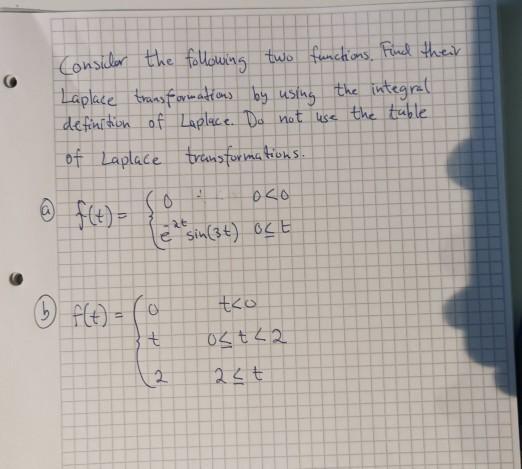 Consider the following two functions. Find their
Laplace transformations by using the integral
definition of Laplace. Do not use the table
of Laplace transformations.
(a) f(t) = { 0 0<0
e^-2t sin(3t) 0≤t
(b) f(t) = { 0 t<0
t 0≤t<2
2 2≤t